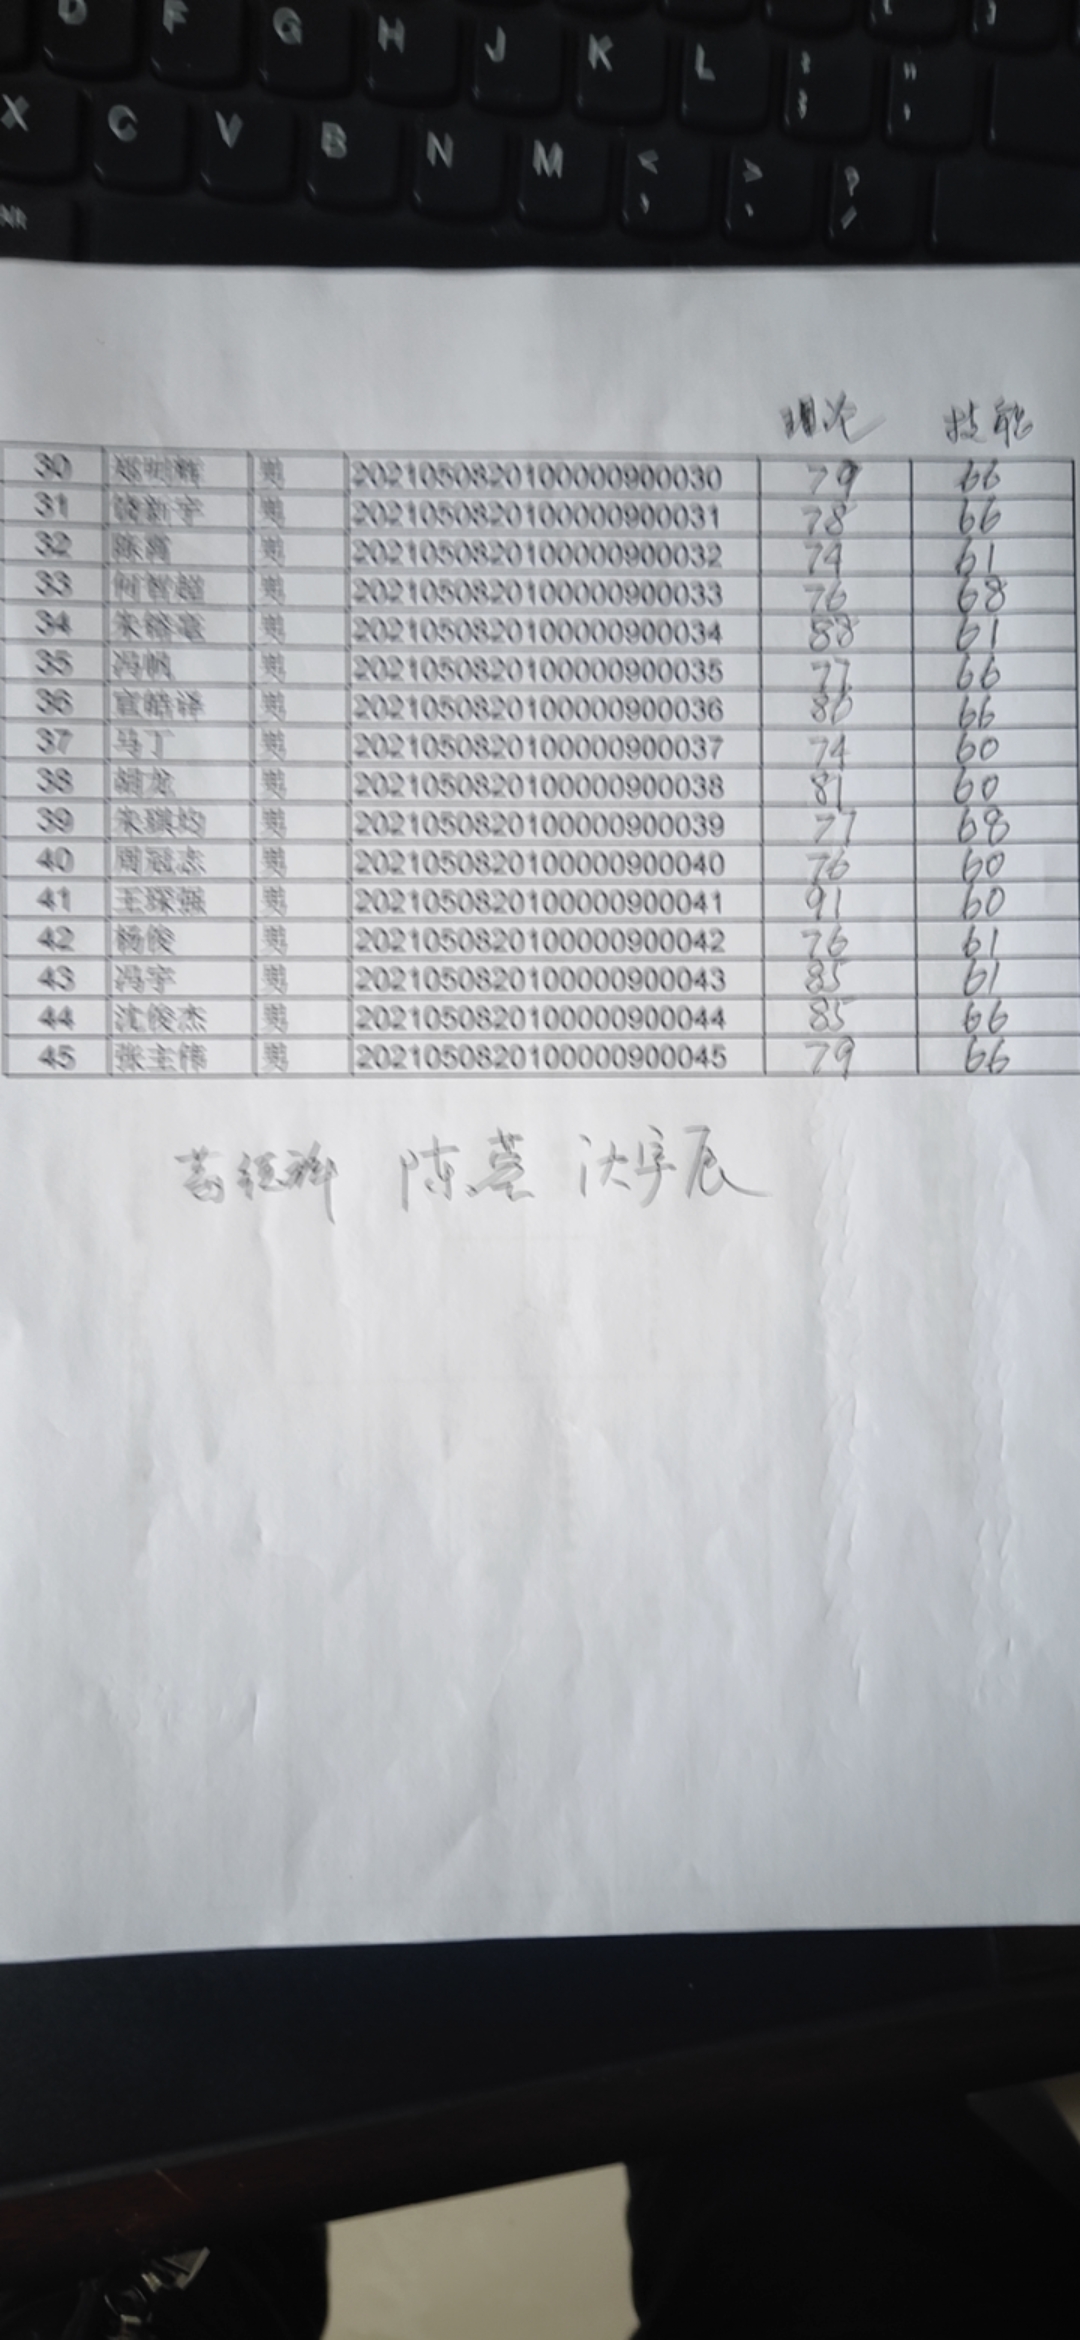 D F G H J K L : ;
X C V B N M < , > . ? /
理论 技能
30 男 20210508201000000900030 79 66
31 男 20210508201000000900031 78 66
32 男 20210508201000000900032 74 61
33 何智超 男 20210508201000000900033 76 68
34 男 20210508201000000900034 88 61
35 冯帆 男 20210508201000000900035 77 66
36 男 20210508201000000900036 80 66
37 马丁 男 20210508201000000900037 74 60
38 胡龙 男 20210508201000000900038 81 60
39 朱琪均 男 20210508201000000900039 77 68
40 周冠志 男 20210508201000000900040 76 60
41 王琛强 男 20210508201000000900041 91 60
42 杨俊 男 20210508201000000900042 76 61
43 冯宇 男 20210508201000000900043 85 61
44 沈俊杰 男 20210508201000000900044 85 66
45 张主伟 男 20210508201000000900045 79 66
陈 宇辰